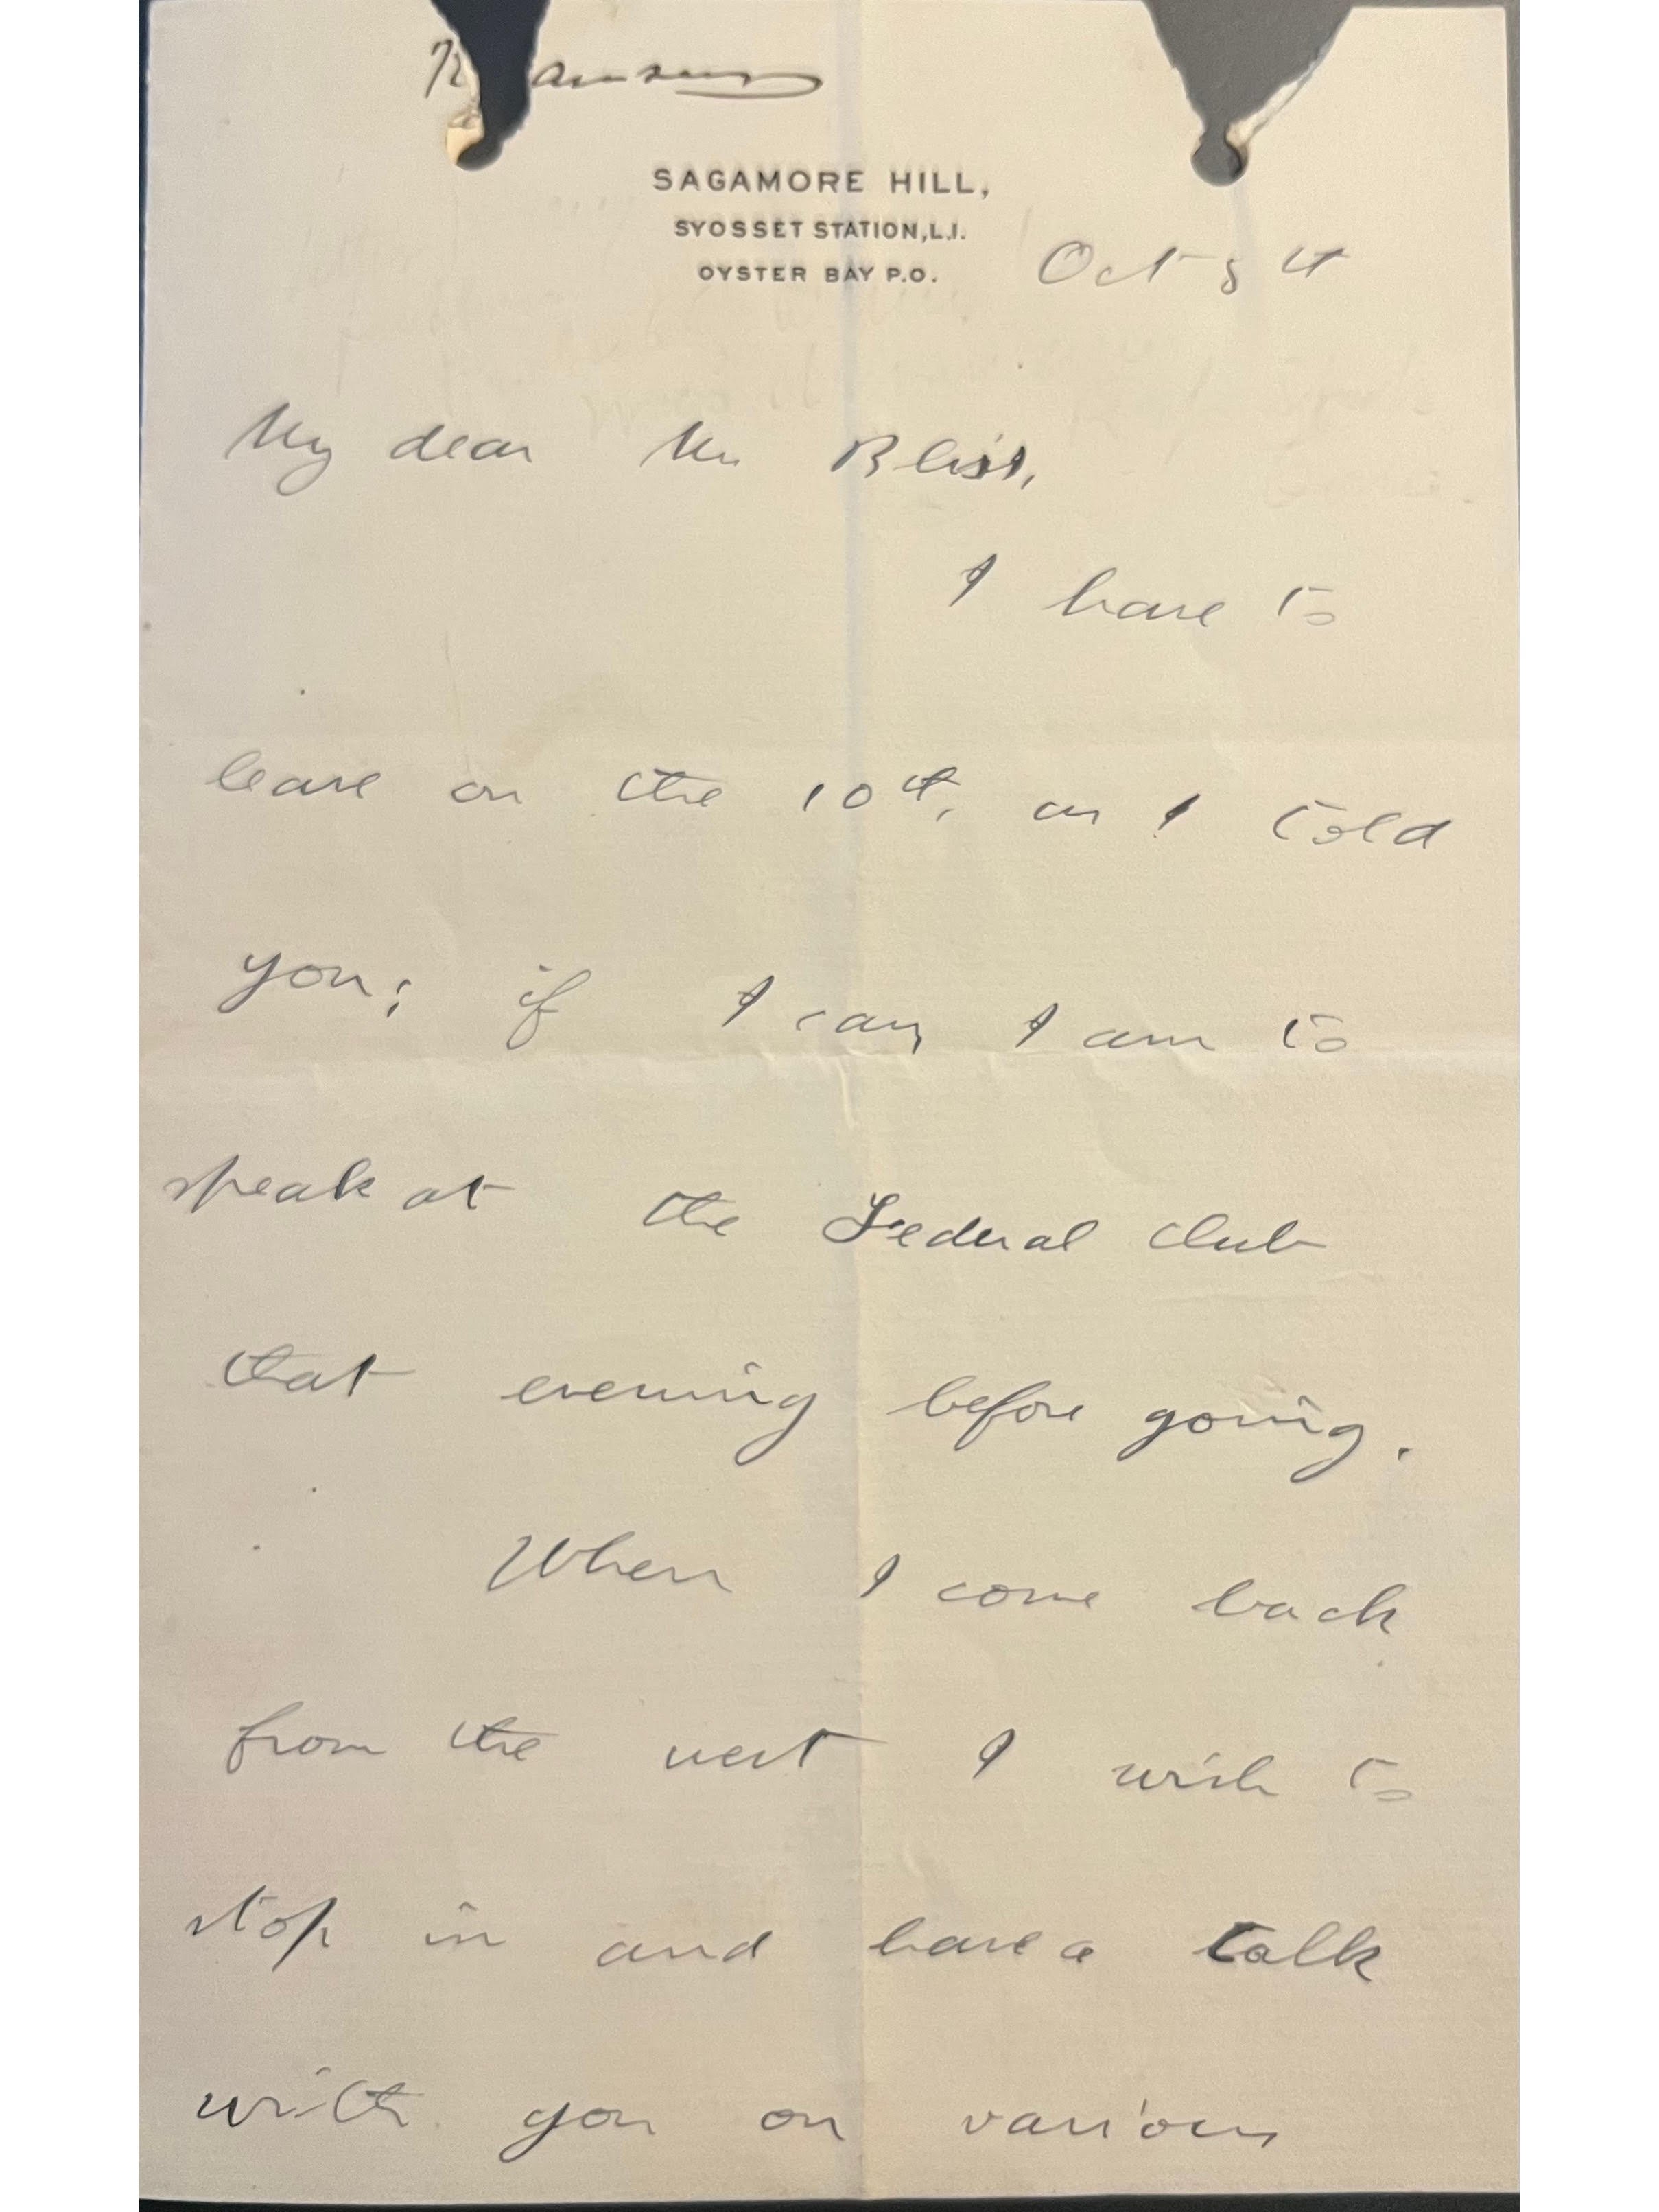 SAGAMORE HILL,
SYOSSET STATION, L.I.
OYSTER BAY P.O.
Oct 8th
My dear Mr Bliss,
I have to
leave on the 10th, as I told
you; if I can, I am to
speak at the Federal Club
that evening before going.
When I come back
from the west I wish to
stop in and have a talk
with you on various